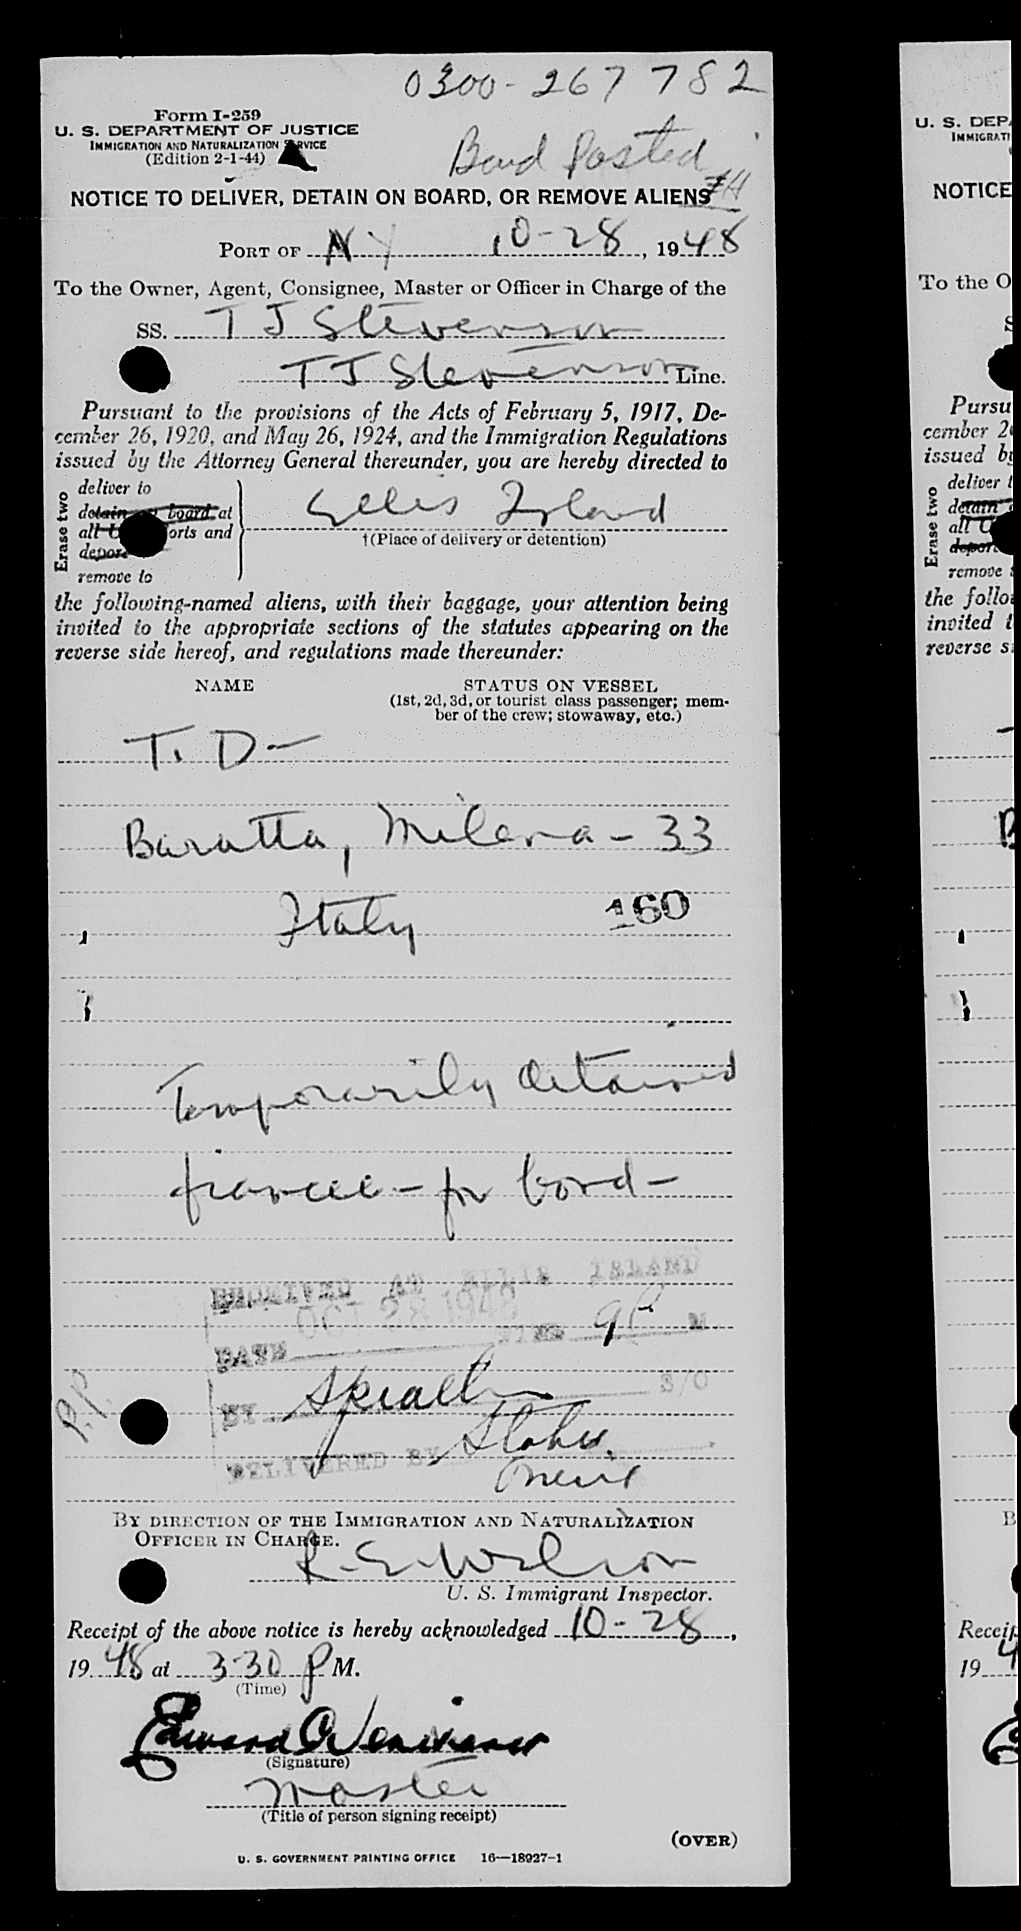 0300-267 782
Form I-259
U. S. DEPARTMENT OF JUSTICE
IMMIGRATION AND NATURALIZATION SERVICE
(Edition 2-1-44)
Bond Posted
NOTICE TO DELIVER, DETAIN ON BOARD, OR REMOVE ALIENS
PORT OF NY 10-28, 1948
To the Owner, Agent, Consignee, Master or Officer in Charge of the
SS. T J Stevenson
T J Stevenson Line.
Pursuant to the provisions of the Acts of February 5, 1917, De-
cember 26, 1920, and May 26, 1924, and the Immigration Regulations
issued by the Attorney General thereunder, you are hereby directed to
Erase two
deliver to
detain on board at
all U. S. ports and
deport
remove to
Ellis Island
†(Place of delivery or detention)
the following-named aliens, with their baggage, your attention being
invited to the appropriate sections of the statutes appearing on the
reverse side hereof, and regulations made thereunder:
NAME STATUS ON VESSEL
(1st, 2d, 3d, or tourist class passenger; mem-
ber of the crew; stowaway, etc.)
T. D-
Baratta, Milena - 33
Italy 160
Temporarily detained
fiancee - for bond -
RECEIVED AT ELLIS ISLAND
OCT 28 1948
DATE TIME 9P M
BY S/O
DELIVERED BY
P.P.
BY DIRECTION OF THE IMMIGRATION AND NATURALIZATION
OFFICER IN CHARGE.
R. E. Wilson
U. S. Immigrant Inspector.
Receipt of the above notice is hereby acknowledged 10-28,
1948 at 3 30 P M.
(Time)
Edward
(Signature)
Master
(Title of person signing receipt)
(OVER)
U. S. GOVERNMENT PRINTING OFFICE 16—18927-1
U. S. DEP
IMMIGRATI
NOTICE
To the O
S
Pursu
cember 2
issued by
Erase two
deliver t
detain
all U
deport
remove
the follo
invited t
reverse s
B
Receip
19 4